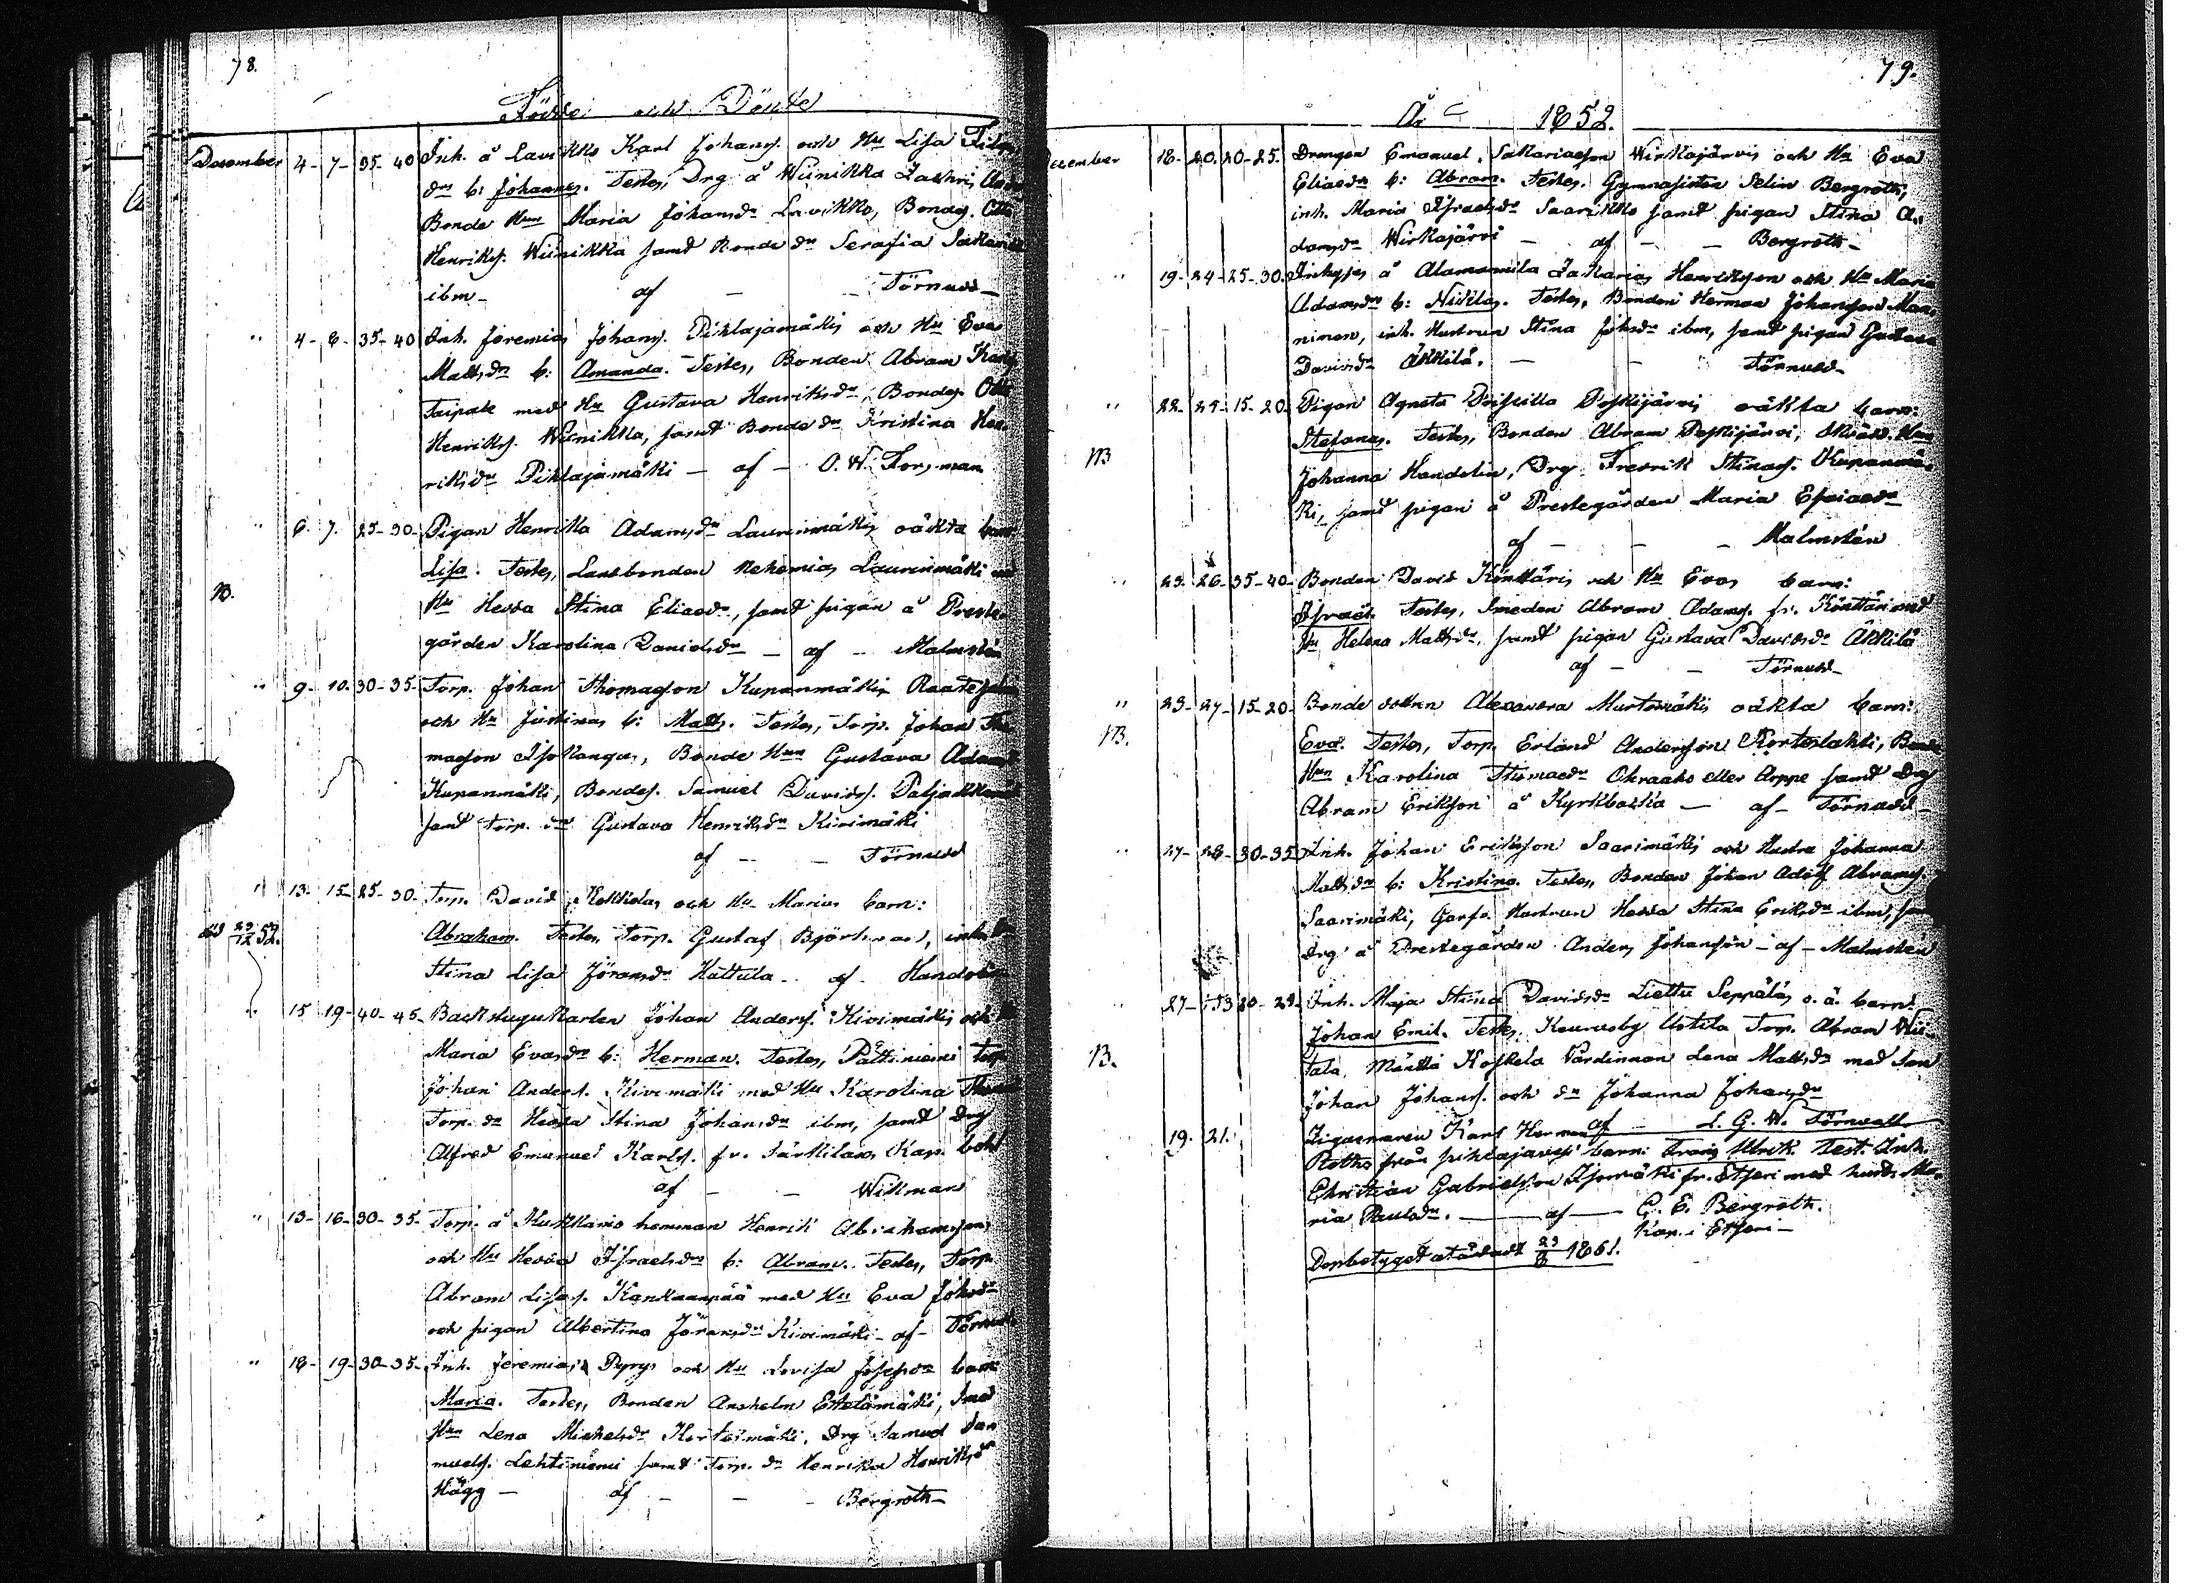 78.
Födde och Döpte
December 4-7-35-40 Inh. å Lavikko Karl Johans. och Hu Lisa
dr b: Johannes. Testes, Drg å Wiinikka Zachris
Bonde Hun Maria Johansdr Lavikko, Bondes. Otto
Henriks. Wiinikka samt Bonde dr Serafia
ibm - af - - Törnudd -
" 4-8-35-40 Inh. Jeremias Johans. Pihlajamäkis och Hu Eva
Mattsdr b: Amanda. Testes, Bonden Abram
Taipale med Hu Gustava Henriksdr, Bondes. Otto
Henriks. Wiinikka, samt Bonde dr Kristina Hen
riksdr Pihlajamäki - af - O. W. Forsman
" 6. 7. 25-30- Pigan Henrika Adamsdr Laurinmäkis oäkta barn
Lisa. Testes, Landbonden Nehemias Laurinmäki med
B. Hu Hedda Stina Eliaedr, samt pigan å Preste-
gården Karolina Danielsdr - af - Malmstén
" 9-10-30-35- Torp. Johan Thomasson Kupanmäki
och Hu Justinas b: Matts. Testes, Torp. Johan Tho
masson Isokangas, Bonde Hun Gustava Adams
Kupanmäki, Bondes. Samuel Davids.
samt Torp. dr Gustava Henriksdr Kivimäki
af - - Törnudd
" 13-15-25-30- Torp. David Kokkolas och Hu Marias barn:
död 29/12 52. Abraham. Testes, Torp. Gustaf
Stina Lisa Göransdr Kattula - af - Handolin
" 15 19-40-45- Backstugukarlen Johan Anders. Kivimäkis och Hu
Maria Evasdr b: Herman. Testes, Pättiniemi Torp.
Johan Anders. Kivimäki med Hu Karolina
Torp. dr Hedda Stina Johansdr ibm, samt Drg
Alfred Emanuel Karls. fr. Särkilaks Kap. bok
af - - Wikman
" 13-16-30-35- Torp. å hemman Henrik Abrahamsson
och Hu Hedda Israelsdr b: Abram. Testes, Torp.
Abram Lisas. Kankaanpää med Hu Eva Johsdr
och pigan Albertina Göransdr Kivimäki - af - Törnudd
" 18-19-30-35- Inh. Jeremias Pyrys och Hu Lovisa Josefsdr barn
Maria. Testes, Bonden Anshelm Etelämäki, Smed
Hun Lena Michelsdr Kortesmäki, Drg Samuel Sa
muels. Lehtiniemi samt Torp. dr Henrika Henriksdr
Hägg - af - - - Bergroth -
79.
År 1852.
December 18-20. 20-25. Drengen Emanuel Sakariasson Wirkajärvis och Hu Eva
Eliaedr b: Abram. Testes, Gymnasisten Selin Bergroth,
inh. Maria Israelsdr Saarikko samt pigan Stina A
damsdr Wirkajärvi - af - - Bergroth -
" 19-24-25-30. Inhyses å Alamannila Zakarias Henriksson och Hu Maria
Adamsdr b: Nicklas. Testes, Bonden Herman Johansson Man
ninen, inh. Hustrun Stina Johsdr ibm, samt pigan Gustava
Davidsdr Äkkilä. - - Törnudd -
" 22-24-15-20. Pigan Agneta Priscilla Poskijärvis oäkta barn:
Stefanus. Testes, Bonden Abram Poskijärvi, Hun
B Johanna Handolin, Drg Fredrik Stinas. Kupanmä-
ki, samt pigan å Prestegården Maria Esaiaedr
af - - - Malmstén
" 23-26-35-40- Bonden David Könttäris och Hu Evas barn:
Israel. Testes, Smeden Abram Adams. fr. Könttäri med
Hu Helena Mattsdr, samt pigan Gustava Davidsdr Äkkilä
af - - Törnudd -
" 23-27-15-20- Bonde dottren Alexandra Murtomäkis oäkta barn:
B. Eva. Testes, Torp. Erland Andersson Korteslahti, Bonde
Hun Karolina Thomaedr Okraaho eller Arppe samt Drg
Abram Eriksson å Kyrkbacka - af - Törnudd -
" 27-28-30-35 Inh. Johan Eriksson Saarimäkis och Hustru Johanna
Mattsdr b: Kristina. Testes, Bonden Johan Adolf Abrams.
Saarimäki, Hustrun Hedda Stina Eriksdr ibm, samt
Drg å Prestegården Anders Johansson - af - Malmstén
" 27- 20-25- Inh. Maja Stina Davidsdr Liettu Seppäläs o.ä. barn:
Johan Emil. Testes, Keuruuby Torp. Abram
B. Mänttä Koskela Värdinnan Lena Mattsdr med son
Johan Johans. och dr Johanna Johansdr
af - L. G. W. Törnudd
19. 21. Zigenaren Karl Herman
Roths från Pihlajavesi barn: Frans Ulrik. Test. Inh.
Christian Gabrielsson fr. Etseri med hustr. Ma
ria Paulsdr. - af - G. E. Bergroth.
Kap. i Etseri -
Dopbetyget utfärdadt 23/8 1861.